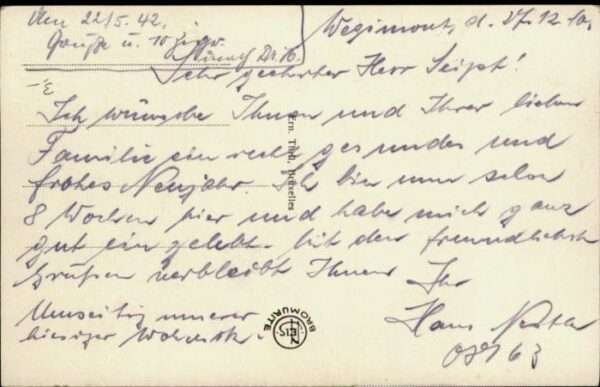 22/5. 42.
Wegimont, d. 27.12.40.
Sehr geehrter Herr Seipt!
Ich wünsche Ihnen und Ihrer lieben
Familie ein recht gesundes und
frohes Neujahr. Ich bin nun schon
8 Wochen hier und habe mich ganz
gut ein gelebt. Mit den freundlichsten
Grüßen verbleibt Ihnen Ihr
Hans
Umseitig unserer
hiesiger
Ern. Thill, Bruxelles
BROMURITE
NELS